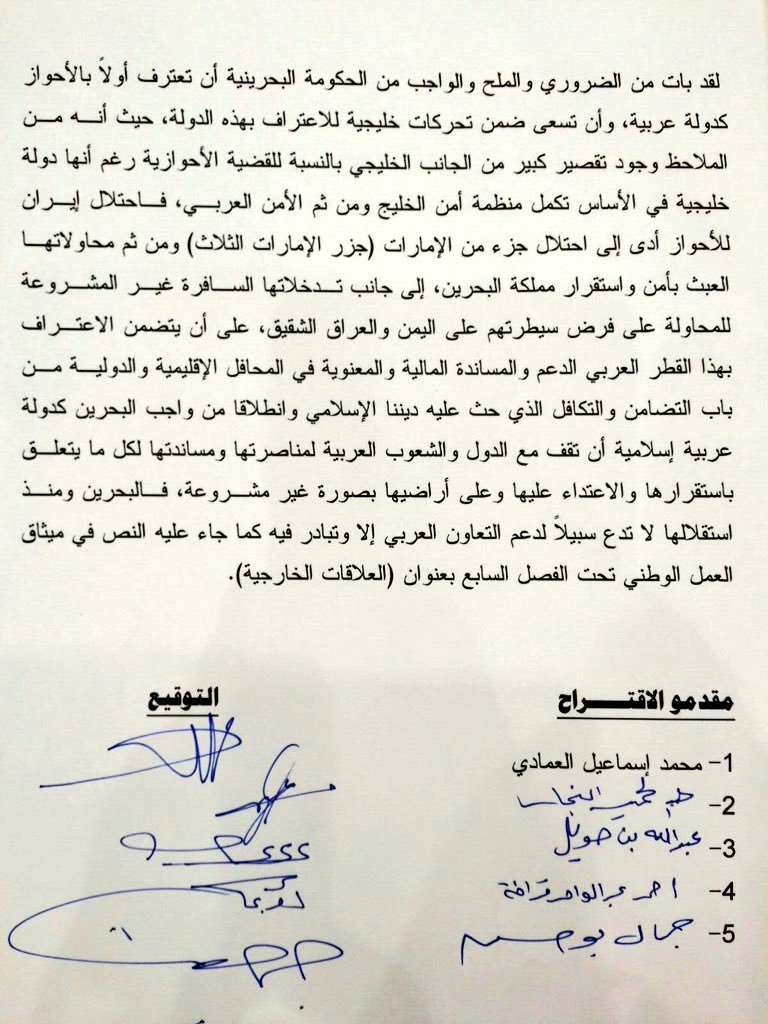 لقد بات من الضروري والملح والواجب من الحكومة البحرينية أن تعترف أولاً بالأحواز
كدولة عربية، وأن تسعى ضمن تحركات خليجية للاعتراف بهذه الدولة، حيث أنه من
الملاحظ وجود تقصير كبير من الجانب الخليجي بالنسبة للقضية الأحوازية رغم أنها دولة
خليجية في الأساس تكمل منظمة أمن الخليج ومن ثم الأمن العربي، فاحتلال إيران
للأحواز أدى إلى احتلال جزء من الإمارات (جزر الإمارات الثلاث) ومن ثم محاولاتها
العبث بأمن واستقرار مملكة البحرين، إلى جانب تدخلاتها السافرة غير المشروعة
للمحاولة على فرض سيطرتهم على اليمن والعراق الشقيق، على أن يتضمن الاعتراف
بهذا القطر العربي الدعم والمساندة المالية والمعنوية في المحافل الإقليمية والدولية من
باب التضامن والتكافل الذي حث عليه ديننا الإسلامي وانطلاقا من واجب البحرين كدولة
عربية إسلامية أن تقف مع الدول والشعوب العربية لمناصرتها ومساندتها لكل ما يتعلق
باستقرارها والاعتداء عليها وعلى أراضيها بصورة غير مشروعة، فالبحرين ومنذ
استقلالها لا تدع سبيلاً لدعم التعاون العربي إلا وتبادر فيه كما جاء عليه النص في ميثاق
العمل الوطني تحت الفصل السابع بعنوان (العلاقات الخارجية).
مقدمو الاقتراح التوقيع
1- محمد إسماعيل العمادي
2-
3- عبدالله بن حويل
4- احمد عبدالواحد قراطة
5- جمال بوحسن